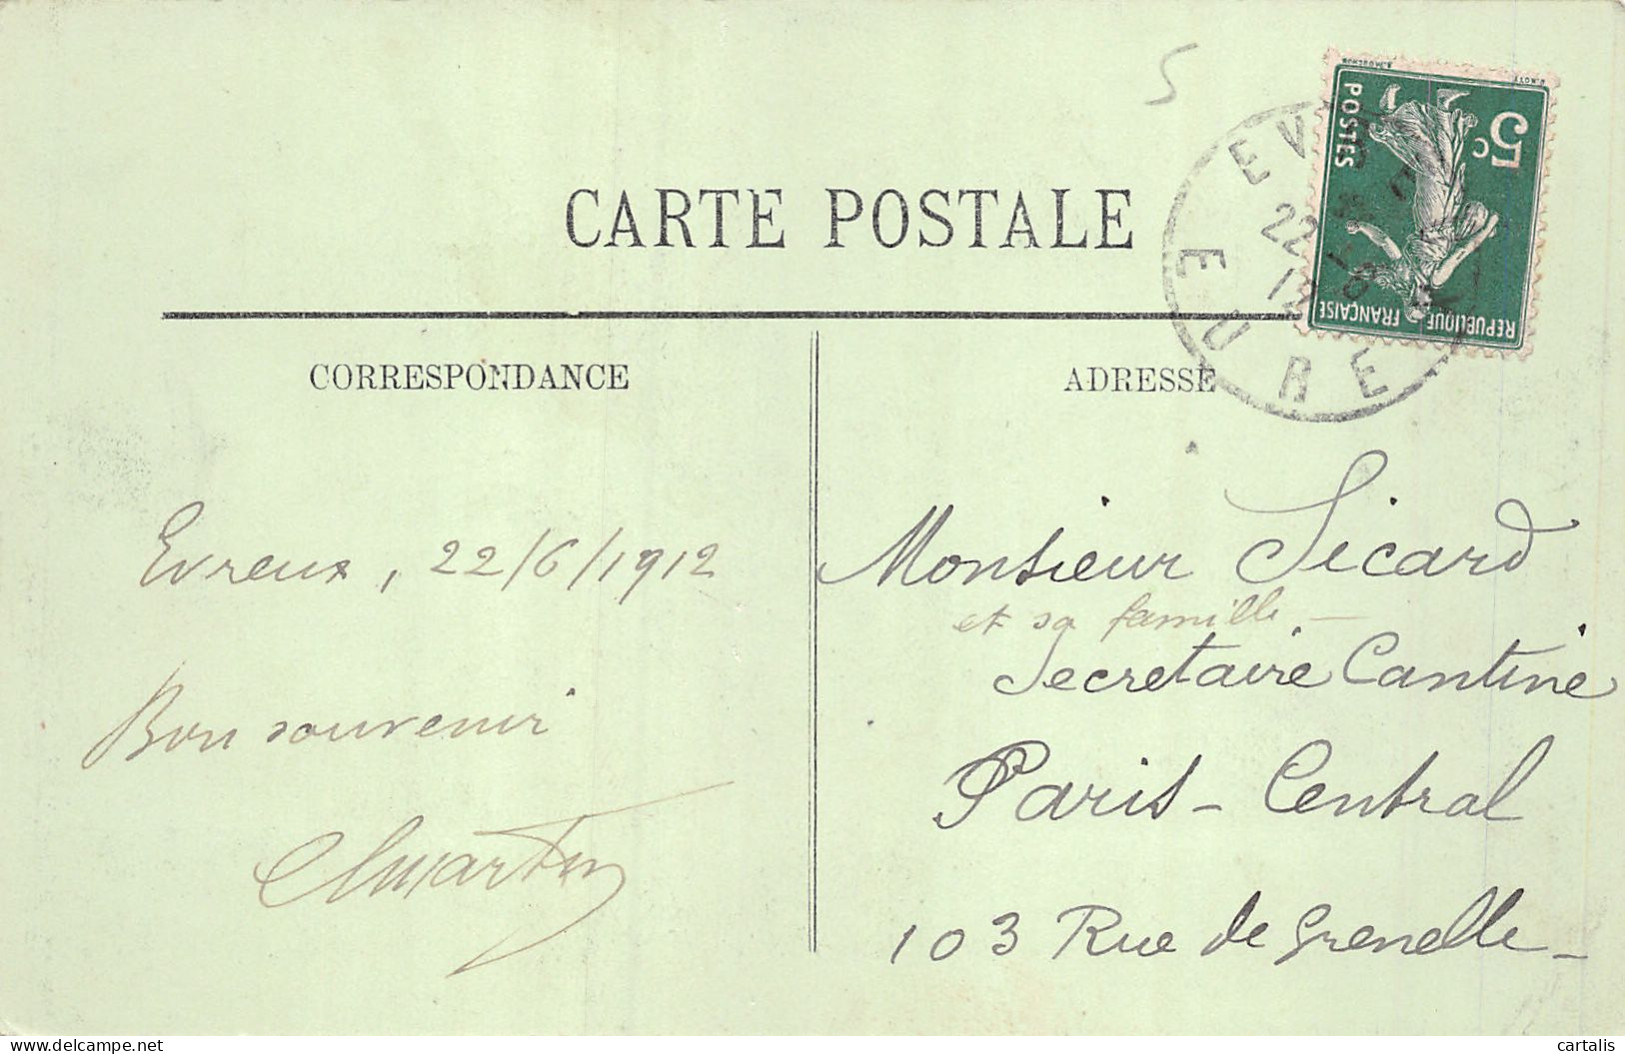 5
CARTE POSTALE
E. MOUCHON
POSTES
5c
REPUBLIQUE FRANÇAISE
EV
22 - 6
12
EURE
CORRESPONDANCE
ADRESSE
Evreux, 22/6/1912
Bon souvenir
Monsieur Sicard
et sa famille —
Secretaire Cantine
Paris - Central
103 Rue de Grenelle -
delcampe.net
cartalis